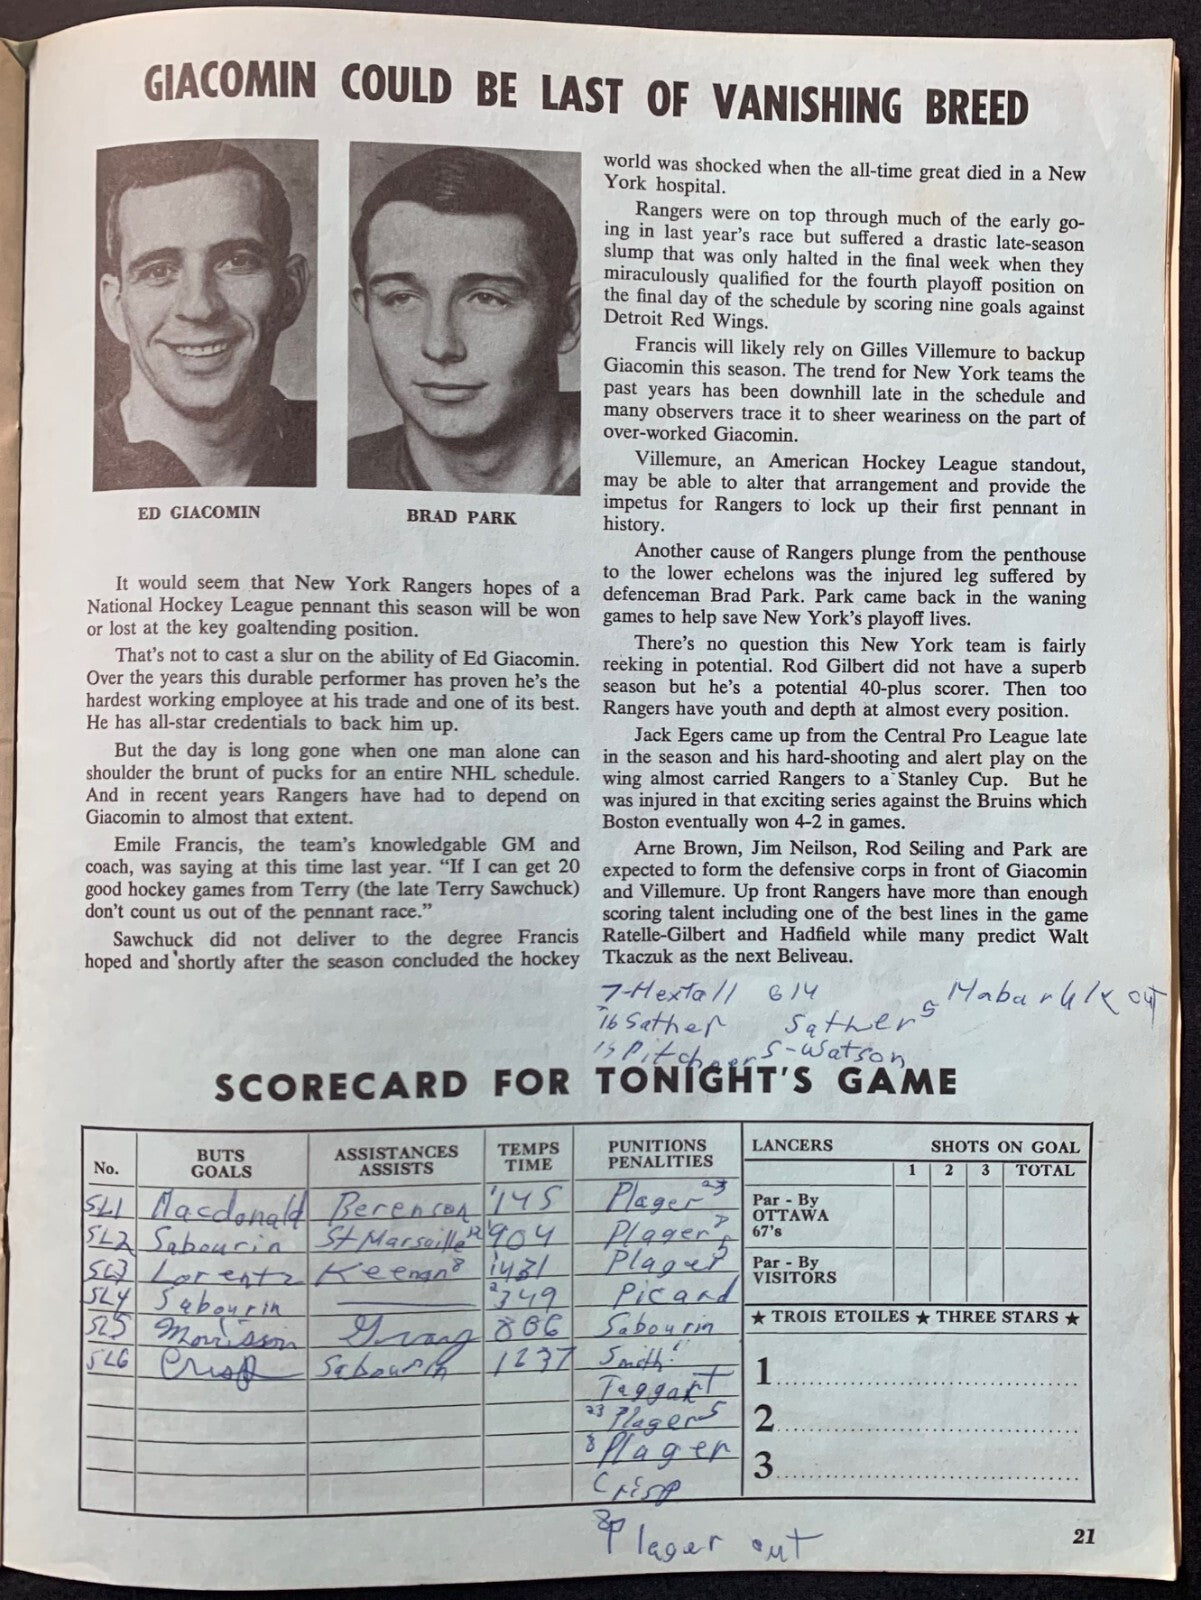 GIACOMIN COULD BE LAST OF VANISHING BREED
ED GIACOMIN
BRAD PARK
It would seem that New York Rangers hopes of a
National Hockey League pennant this season will be won
or lost at the key goaltending position.
That's not to cast a slur on the ability of Ed Giacomin.
Over the years this durable performer has proven he's the
hardest working employee at his trade and one of its best.
He has all-star credentials to back him up.
But the day is long gone when one man alone can
shoulder the brunt of pucks for an entire NHL schedule.
And in recent years Rangers have had to depend on
Giacomin to almost that extent.
Emile Francis, the team's knowledgable GM and
coach, was saying at this time last year. "If I can get 20
good hockey games from Terry (the late Terry Sawchuck)
don't count us out of the pennant race."
Sawchuck did not deliver to the degree Francis
hoped and shortly after the season concluded the hockey
world was shocked when the all-time great died in a New
York hospital.
Rangers were on top through much of the early go-
ing in last year's race but suffered a drastic late-season
slump that was only halted in the final week when they
miraculously qualified for the fourth playoff position on
the final day of the schedule by scoring nine goals against
Detroit Red Wings.
Francis will likely rely on Gilles Villemure to backup
Giacomin this season. The trend for New York teams the
past years has been downhill late in the schedule and
many observers trace it to sheer weariness on the part of
over-worked Giacomin.
Villemure, an American Hockey League standout,
may be able to alter that arrangement and provide the
impetus for Rangers to lock up their first pennant in
history.
Another cause of Rangers plunge from the penthouse
to the lower echelons was the injured leg suffered by
defenceman Brad Park. Park came back in the waning
games to help save New York's playoff lives.
There's no question this New York team is fairly
reeking in potential. Rod Gilbert did not have a superb
season but he's a potential 40-plus scorer. Then too
Rangers have youth and depth at almost every position.
Jack Egers came up from the Central Pro League late
in the season and his hard-shooting and alert play on the
wing almost carried Rangers to a Stanley Cup. But he
was injured in that exciting series against the Bruins which
Boston eventually won 4-2 in games.
Arne Brown, Jim Neilson, Rod Seiling and Park are
expected to form the defensive corps in front of Giacomin
and Villemure. Up front Rangers have more than enough
scoring talent including one of the best lines in the game
Ratelle-Gilbert and Hadfield while many predict Walt
Tkaczuk as the next Beliveau.
7-Hextall G14 out
16 Sather Sather 5
Pitcher 5-Watson
SCORECARD FOR TONIGHT'S GAME
No. BUTS GOALS ASSISTANCES ASSISTS TEMPS TIME PUNITIONS PENALITIES
SL1 Macdonald Berenson 145 Plager 23
SL2 Sabourin St Marseille 904 Plager
SL3 Lorentz Keenan 8 Plager 5
SL4 Sabourin 349 Picard
SL5 Morrison 806 Sabourin
SL6 Crisp Sabourin 1237 Smith
Taggart
23 Plager 5
8 Plager
Crisp
Plager out
LANCERS SHOTS ON GOAL
1 2 3 TOTAL
Par - By
OTTAWA
67's
Par - By
VISITORS
★ TROIS ETOILES ★ THREE STARS ★
1
2
3
21